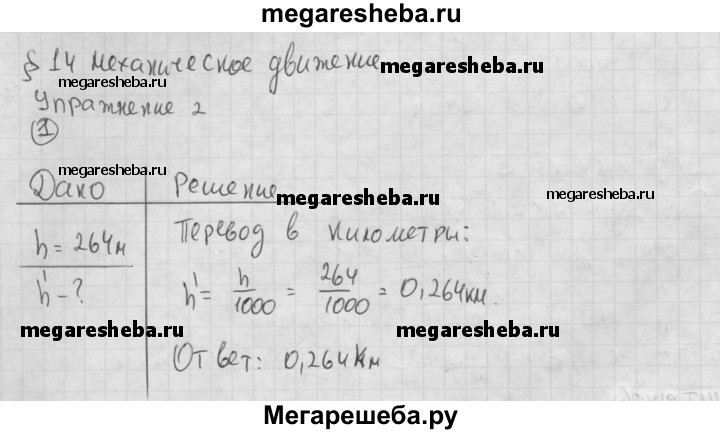 megaresheba.ru
§ 14 механическое движение
megaresheba.ru
megaresheba.ru
Упражнение 2
1
megaresheba.ru
Дано Решение
megaresheba.ru
megaresheba.ru
h = 264м
Перевод в километры:
h' - ?
h' = h/1000 = 264/1000 = 0,264км.
megaresheba.ru
megaresheba.ru
Ответ: 0,264км
Мегарешеба.ру